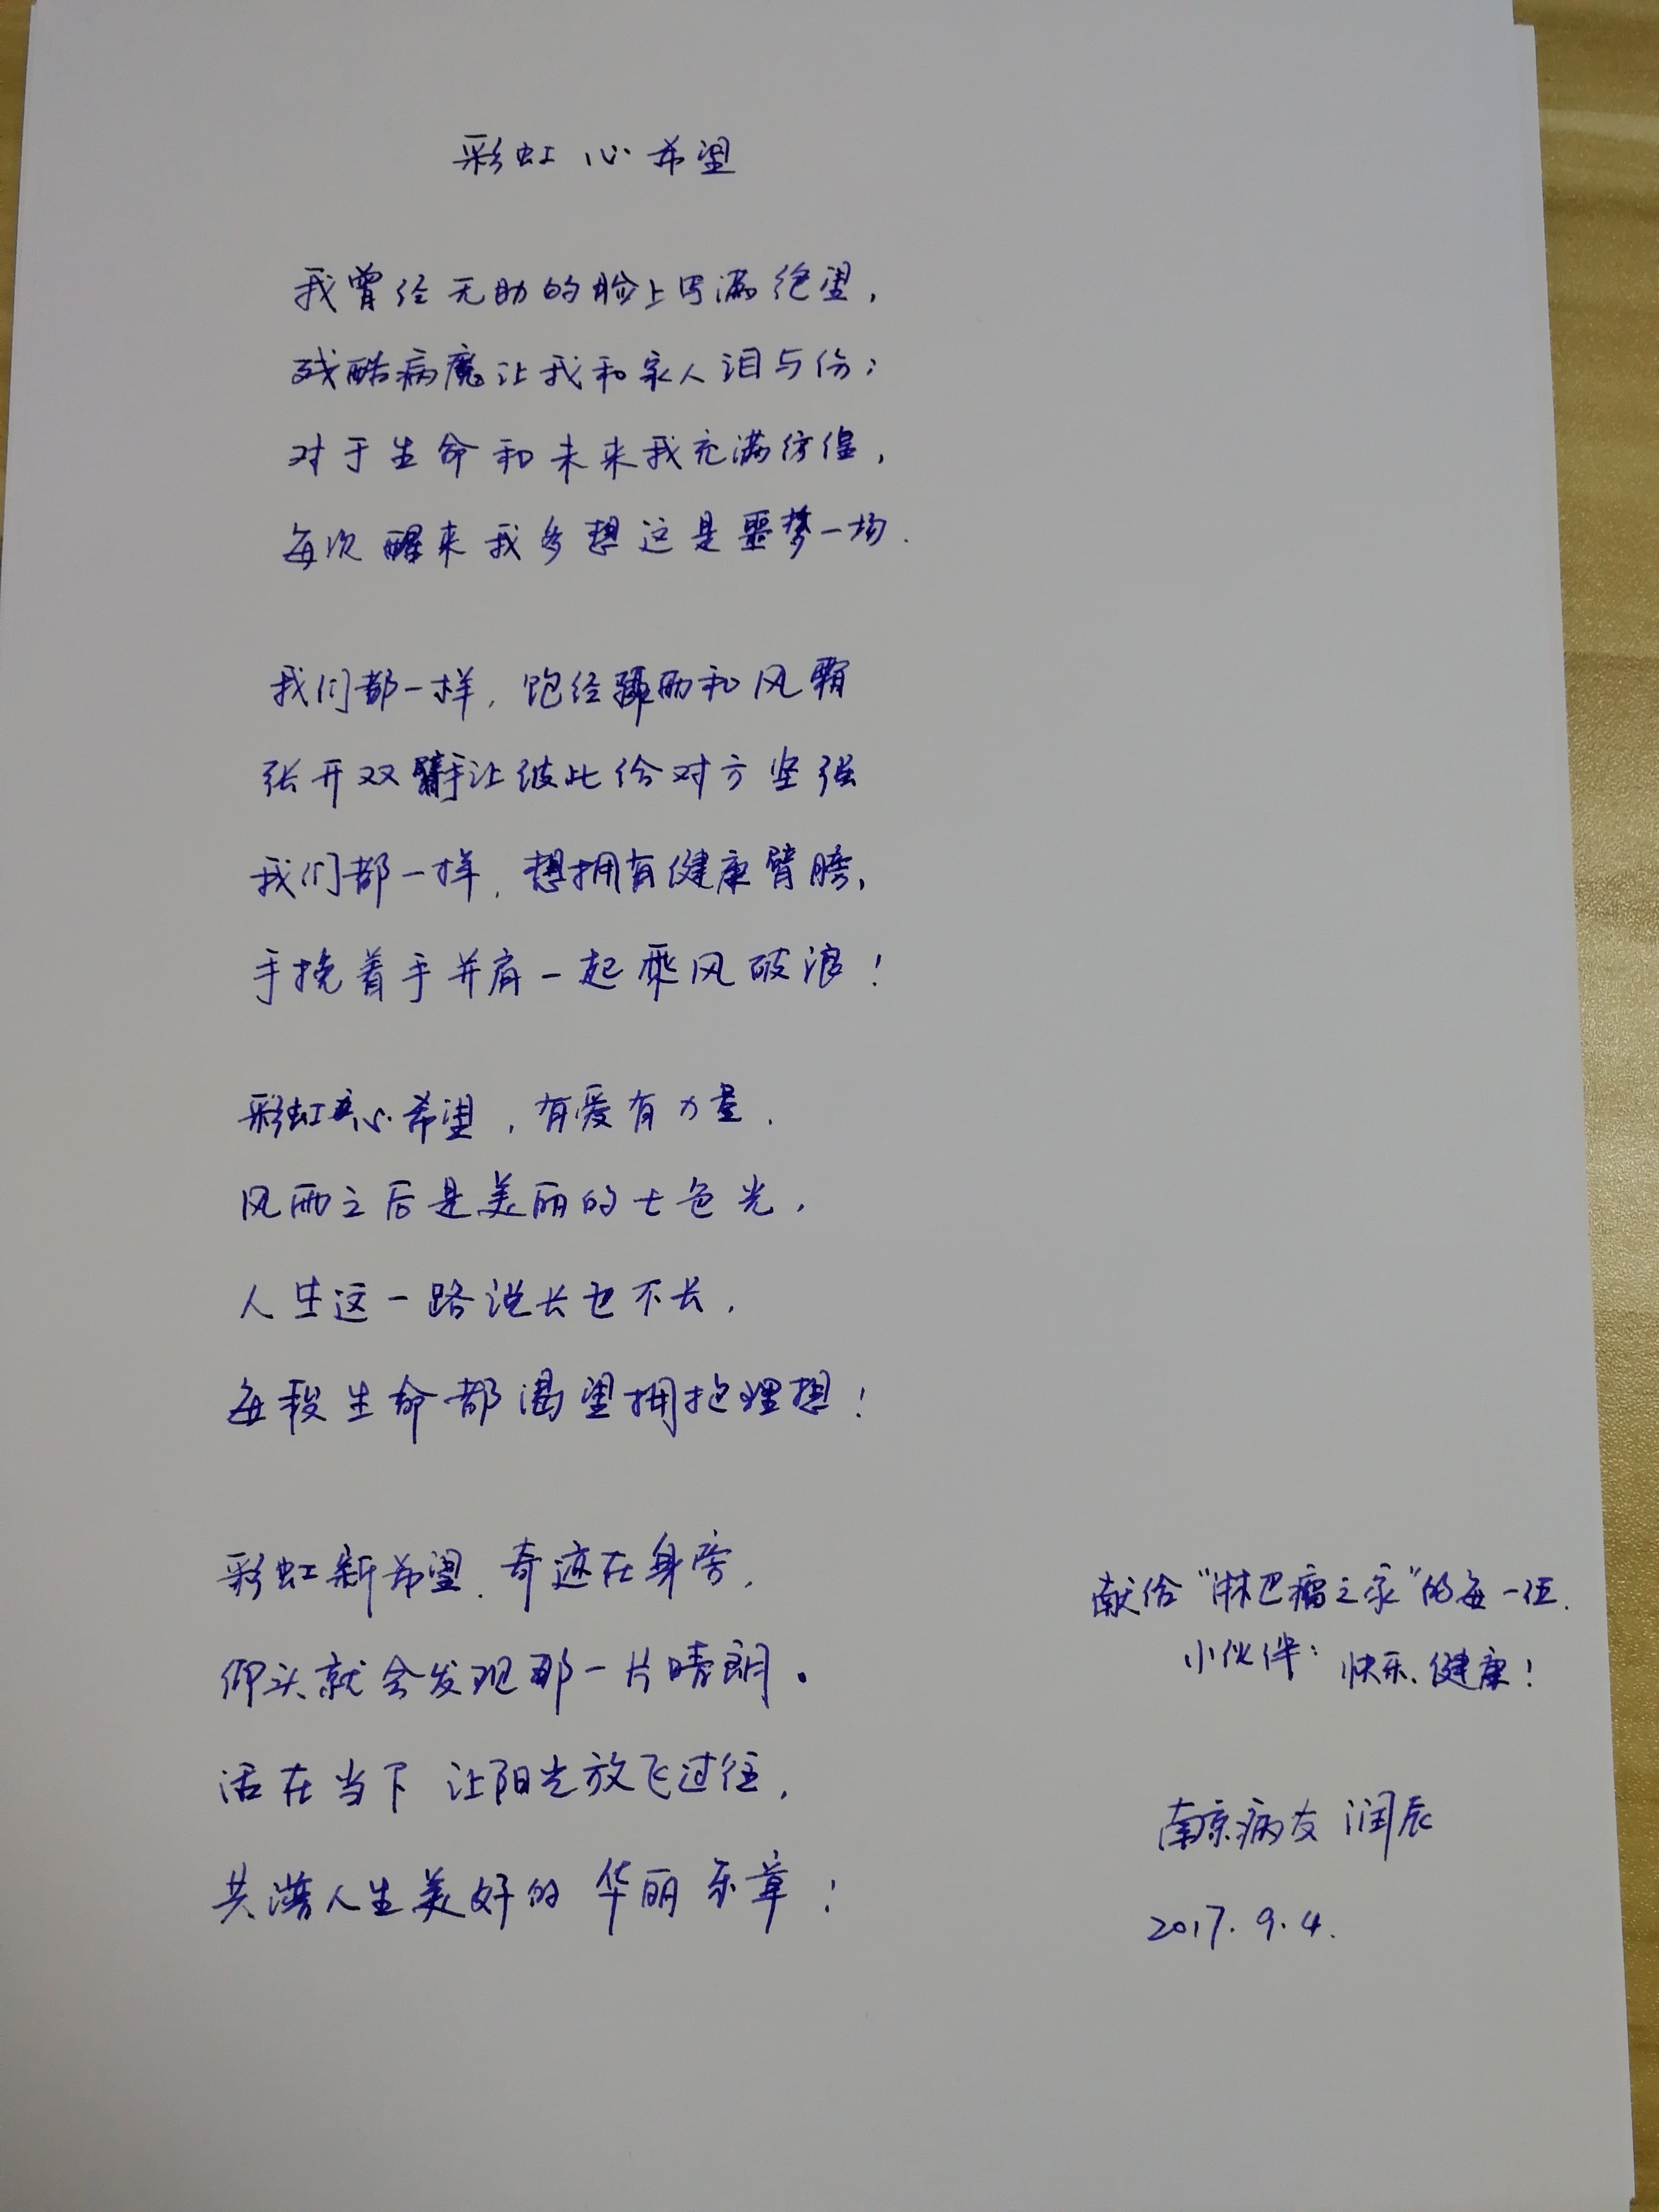 彩虹心希望
我曾经无助的脸上写满绝望，
残酷病魔让我和家人泪与伤；
对于生命和未来我充满彷徨，
每次醒来我多想这是噩梦一场.
我们都一样，饱经骤雨和风霜
张开双手让彼此给对方坚强
我们都一样，想拥有健康臂膀，
手挽着手并肩一起乘风破浪！
彩虹心希望，有爱有力量，
风雨之后是美丽的七色光，
人生这一路说长也不长，
每段生命都渴望拥抱理想！
彩虹新希望，奇迹在身旁，
仰头就会发现那一片晴朗。
活在当下 让阳光放飞过往，
共谱人生美好的华丽乐章！
献给“淋巴瘤之家”的每一位
小伙伴：快乐、健康！
南京病友 润辰
2017.9.4.